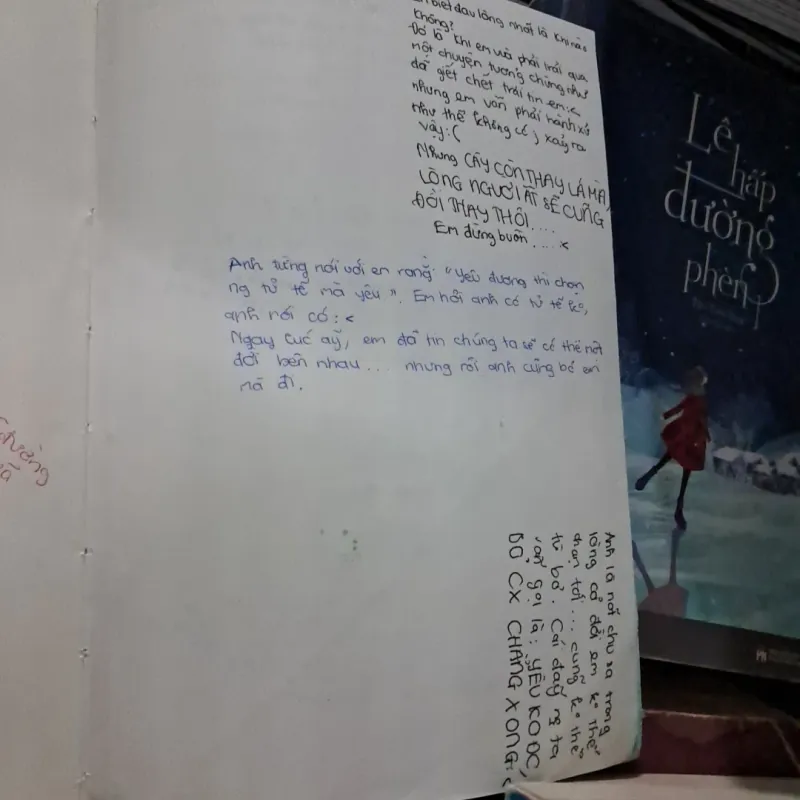 biết đau lòng nhất là khi nào
không?
Đó là khi em vừa phải trải qua
một chuyện tưởng chừng như
đã giết chết trái tim em:<
nhưng em vẫn phải hành xử
như thể không có j xảy ra
vậy:(
Nhưng CÂY CÒN THAY LÁ MÀ,
LÒNG NGƯỜI ẤT SẼ CŨNG
ĐỔI THAY THÔI....
Em đừng buồn....<
Anh từng nói với em rằng: "Yêu đương thì chọn
ng tử tế mà yêu". Em hỏi anh có tử tế ko,
anh nói có:<
Ngay lúc ấy, em đã tin chúng ta sẽ có thể nột
đời bên nhau... nhưng rồi anh cũng bỏ em
mà đi.
Anh là nốt chu sa trong
lòng cả đời em ko thể
chạm tới... cũng ko thể
từ bỏ. Cái đấy ng ta
vẫn gọi là: YÊU KO ĐC,
BỎ CX CHẲNG XONG:<
đường
Lê
hấp
đường
phèn